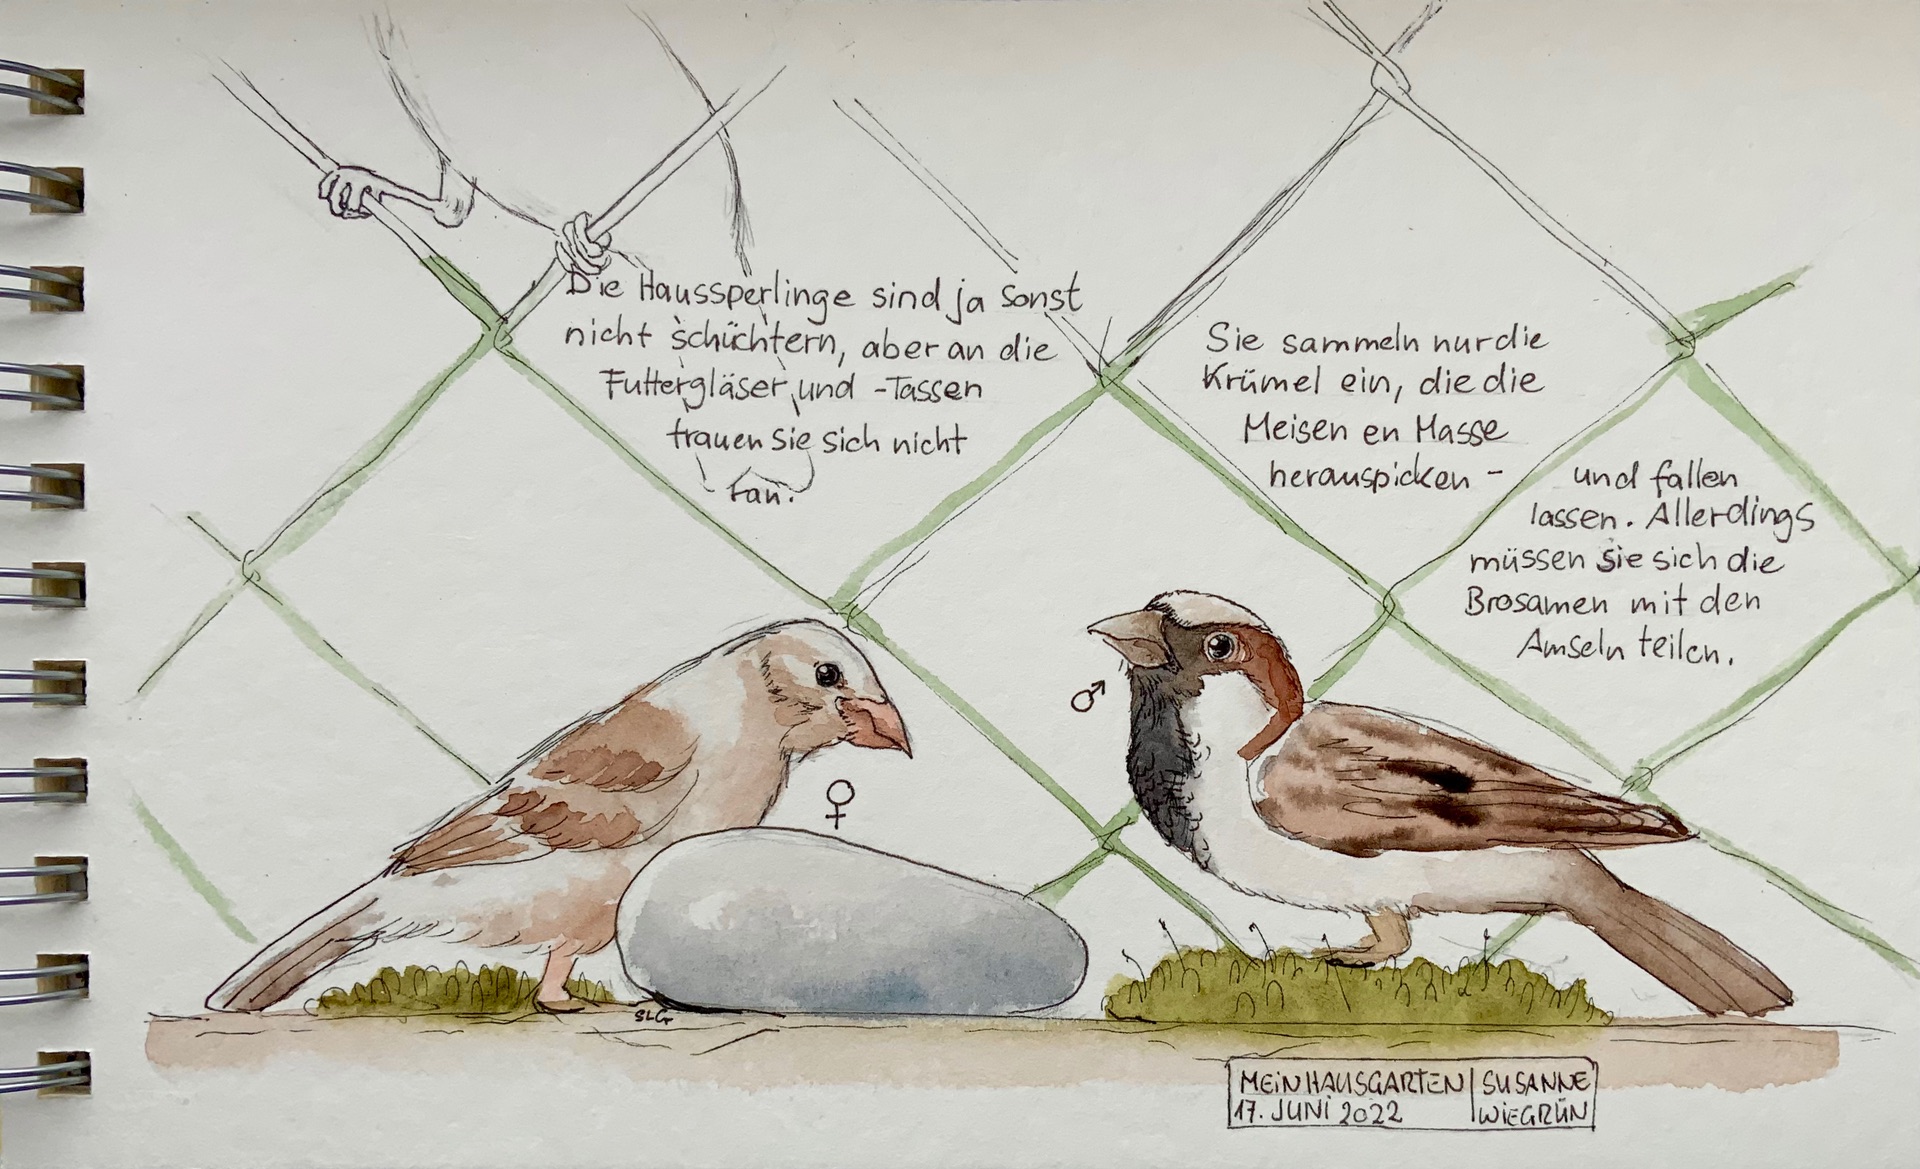 Die Haussperlinge sind ja sonst
nicht schüchtern, aber an die
Futtergläser und -Tassen
trauen sie sich nicht
ran.
Sie sammeln nur die
Krümel ein, die die
Meisen en Masse
herauspicken -
und fallen
lassen. Allerdings
müssen sie sich die
Brosamen mit den
Amseln teilen.
♂
♀
SLG
MEIN HAUSGARTEN
17. JUNI 2022
SUSANNE
WIEGRÜN